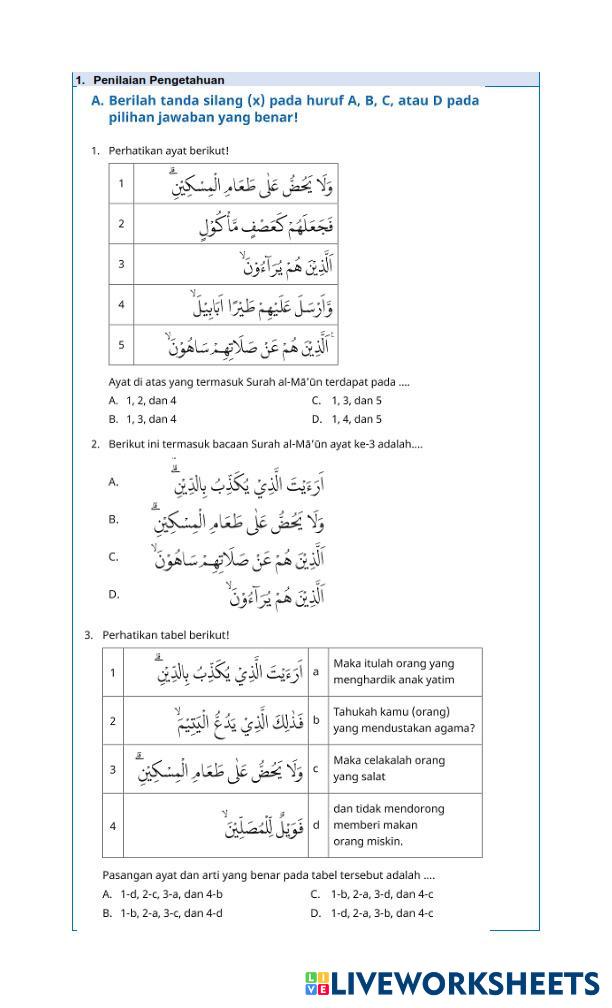 1. Penilaian Pengetahuan
A. Berilah tanda silang (x) pada huruf A, B, C, atau D pada
pilihan jawaban yang benar!
1. Perhatikan ayat berikut!
1 وَلَا يَحُضُّ عَلٰى طَعَامِ الْمِسْكِيْنِۗ
2 فَجَعَلَهُمْ كَعَصْفٍ مَّأْكُوْلٍ
3 الَّذِيْنَ هُمْ يُرَاۤءُوْنَۙ
4 وَّاَرْسَلَ عَلَيْهِمْ طَيْرًا اَبَابِيْلَۙ
5 الَّذِيْنَ هُمْ عَنْ صَلَاتِهِمْ سَاهُوْنَۙ
Ayat di atas yang termasuk Surah al-Mā'ūn terdapat pada ....
A. 1, 2, dan 4 C. 1, 3, dan 5
B. 1, 3, dan 4 D. 1, 4, dan 5
2. Berikut ini termasuk bacaan Surah al-Mā'ūn ayat ke-3 adalah....
A. اَرَءَيْتَ الَّذِيْ يُكَذِّبُ بِالدِّيْنِۗ
B. وَلَا يَحُضُّ عَلٰى طَعَامِ الْمِسْكِيْنِۗ
C. الَّذِيْنَ هُمْ عَنْ صَلَاتِهِمْ سَاهُوْنَۙ
D. الَّذِيْنَ هُمْ يُرَاۤءُوْنَۙ
3. Perhatikan tabel berikut!
1 اَرَءَيْتَ الَّذِيْ يُكَذِّبُ بِالدِّيْنِۗ a Maka itulah orang yang
menghardik anak yatim
2 فَذٰلِكَ الَّذِيْ يَدُعُّ الْيَتِيْمَۙ b Tahukah kamu (orang)
yang mendustakan agama?
3 وَلَا يَحُضُّ عَلٰى طَعَامِ الْمِسْكِيْنِۗ c Maka celakalah orang
yang salat
4 فَوَيْلٌ لِّلْمُصَلِّيْنَۙ d dan tidak mendorong
memberi makan
orang miskin.
Pasangan ayat dan arti yang benar pada tabel tersebut adalah ....
A. 1-d, 2-c, 3-a, dan 4-b C. 1-b, 2-a, 3-d, dan 4-c
B. 1-b, 2-a, 3-c, dan 4-d D. 1-d, 2-a, 3-b, dan 4-c
LIVE LIVEWORKSHEETS